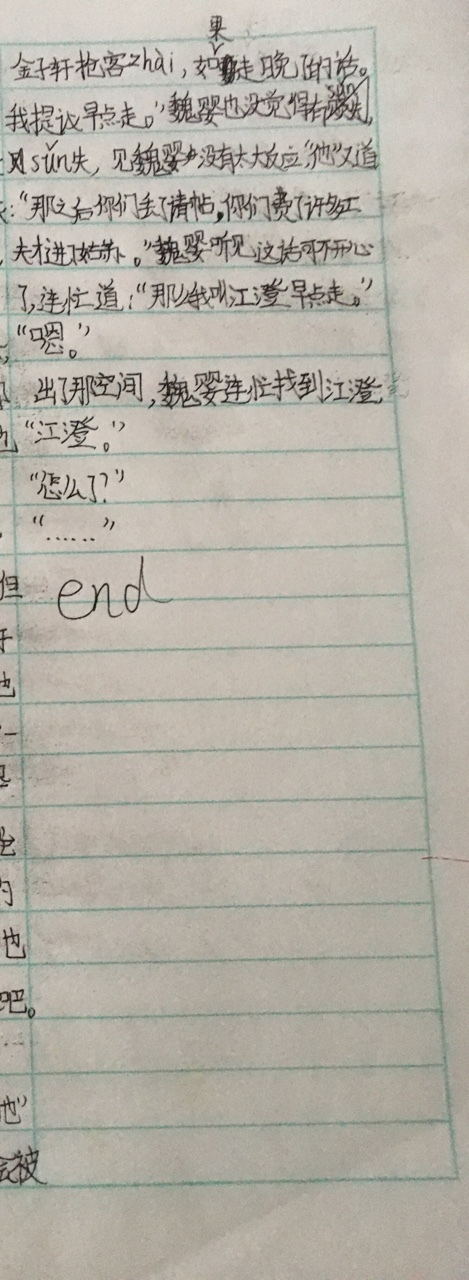 果
金子轩抢客zhài，如走晚了的话。
我提议早点走。”魏婴也没觉得有
sǔn失，见魏婴也没有太大反应“他”又道
：“那之后你们丢了请帖，你们费了许多工
夫才进了姑苏。”魏婴听见这话可不开心
了，连忙道：“那么我叫江澄早点走。”
“嗯。”
出了那空间，魏婴连忙找到江澄
“江澄。”
“怎么了？”
“……”
end
但
于
也
一
也
吧。
他”
会被